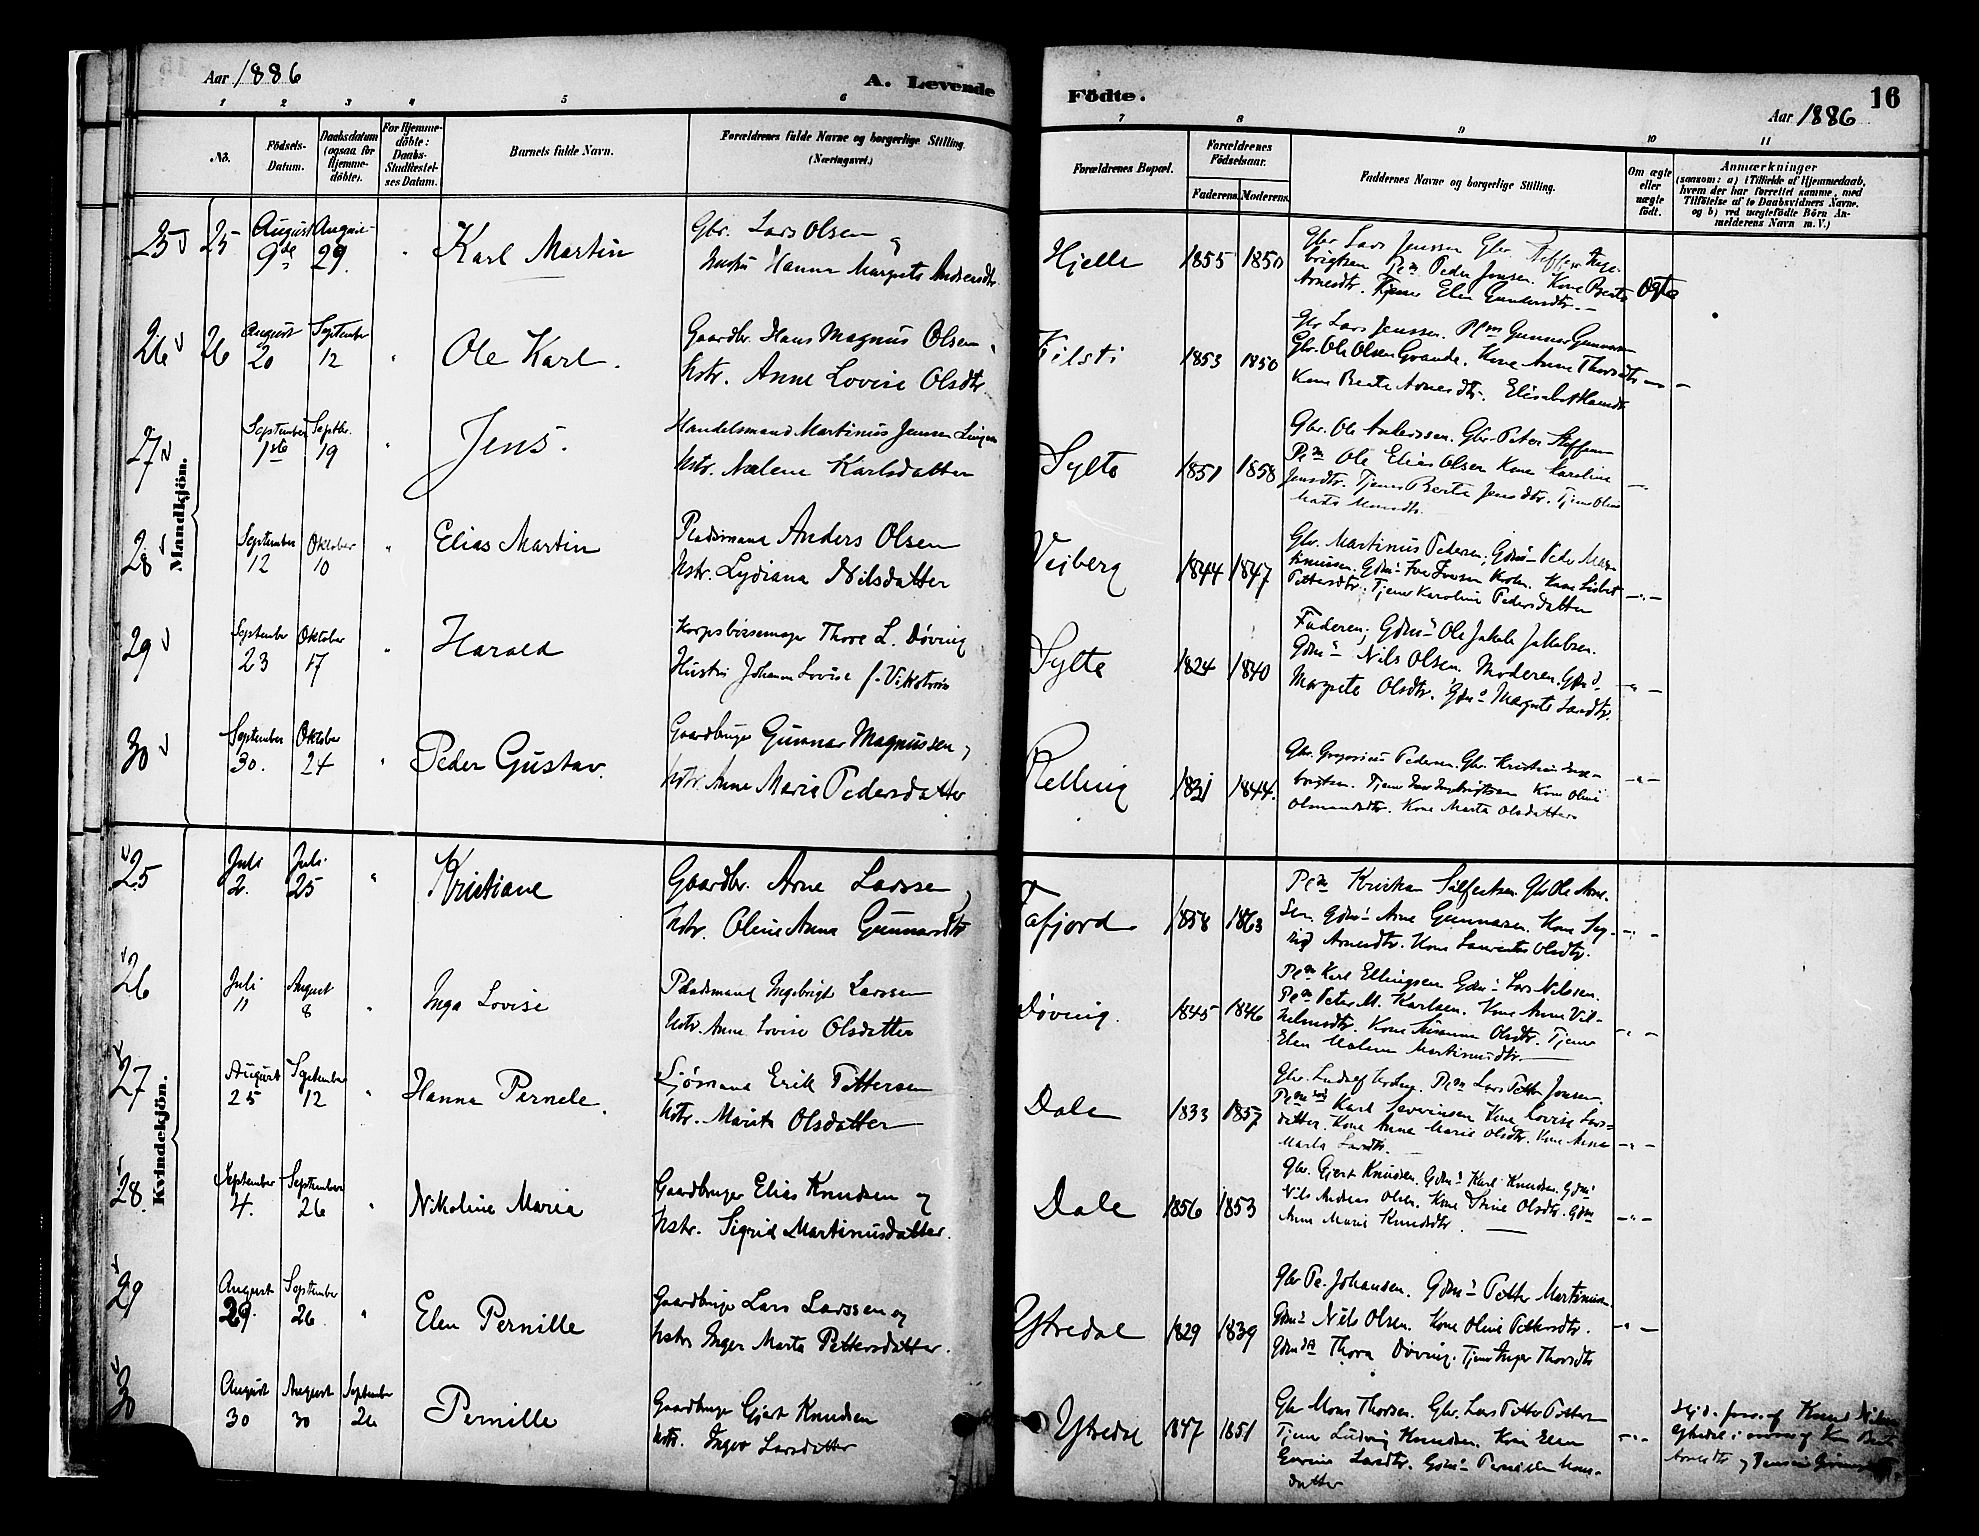 Aar 1886
A. Levende
Födte.
16
Aar 1886
1 2 3 4 5 6 7 8 9 10 11
No. Födsels-Datum. Daabsdatum (ogsaa for Hjemmedöbte). For Hjemmedöbte: Daabs-Stadfæstelses Datum. Barnets fulde Navn. Forældrenes fulde Navne og borgerlige Stilling. (Næringsvei.)
Forældrenes Bopæl. Forældrenes Födselsaar. Faderens. Moderens. Faddernes Navne og borgerlige Stilling. Om ægte eller uægte födt.
Anmærkninger
(saasom: a) i Tilfælde af Hjemmedaab,
hvem der har forrettet samme, med
Tilföielse af to Daabsvidners Navne,
og b) ved uægtefödte Börn An-
melderens Navn m. V.)
Mandkjön.
25 25 August 9de August 29. " Karl Martin
Gbr. Lars Olsen og
Hustru Hanna Margrete Andersdtr.
Hjelle 1855 1850
Gbr Lars Jenssen Gbr Steffen Inge-
brigtsen Plm Peder Jonsen. Kone Berte
Arnesdtr. Tjener Elen Gundersdtr.
ægte
26 26 August 20 September 12 " Ole Karl.
Gaardbr. Hans Magnus Olsen
Hstr. Anne Lovise Olsdtr.
Kilsti 1853 1850
Gbr Lars Jenssen. Plm Gunnar Gunnarsen
Gbr. Ole Olsen Grande. Kone Anne Thorsdtr
Kone Berte Arnesdtr. Elisabet Hansdtr
27 September 1ste Septbr. 19 " Jens.
Handelsmand Martinus Jensen
hstr. Nælene Karlsdatter
Sylte 1851 1858
Gbr. Ole Andersen. Gbr. Peter Steffen
Plm Ole Elias Olsen Kone Karoline
Jensdtr. Tjener Berte Jensdtr. Tjener Oline
28 September 12 Oktober 10 " Elias Martin
Pladsmand Anders Olsen
hstr. Lydiana Nilsdatter
Vejberg 1844 1847
Gbr. Martinus Pedersen; Gdms Peder Mar-
tinussen. Gdms Iver Iversen Kone Lisbet
Pettersdtr. Tjener Karoline Pedersdatter
29 September 23 Oktober 17 " Harald
Korpsbøssemager Thore L. Døving
Hustru Johanne Lovise f. Vikstrøm
Sylte 1824 1840
Faderen; Gdms Ole Jakob Jakobsen.
Gdms Nils Olsen. Moderen. Gdmd.
Margrete Olsdtr. Gdms Margrete Larsdtr.
30 September 30. Oktober 24 " Peder Gustav.
Gaardbruger Gunnar Magnussen og
hstr. Anne Marie Pedersdatter
Relling 1831 1844.
Gbr. Gregorius Pedersen. Gbr. Kristian Inge-
brigtsen. Tjener Ingebrigtsen Kone Oline
Olsmundsdtr. Kone Marta Olsdatter
Kvindekjön.
25 Juli 2. Juli 25 " Kristiane
Gaardbr. Arne Larssen
hstr. Oline Anna Gunnarsdtr
Tafjord 1858 1863
Plm Kristian Silfertsen. Gbr Ole Arne-
sen. Gdms Arne Gunnarsen. Kone Sig-
rid Arnesdtr. Kone Laurentse Olsdtr.
26 Juli 11 August 8 " Inga Lovise
Pladsmand Ingebrigt Larssen
hstr. Anne Lovise Olsdatter
Døving. 1845 1846
Plm Karl Ellingsen Gdms Lars Nilssen.
Plm Peter M. Karlsen. Kone Anne Vil-
helmsdtr. Kone Susanne Olsdtr. Tjener
Elen Malene Martinusdtr.
27 August 25 September 12 " Hanna Pernele.
Sjømand Erik Pettersen
hstr. Marit Olsdatter
Dale 1833 1857
Plm Lars Petter Jonsen.
Karl Severinsen Kone Lovise Lars-
datter. Kone Anne Marie Olsdtr. Kone Anne
Marta Larsdtr.
28. September 4. September 26 " Nikoline Maria
Gaardbruger Elias Knudsen og
hstr. Sigrid Martinusdatter.
Dale 1856 1853
Gbr. Gjert Knudsen. Gdms Karl Knudsen. Gdms
Nils Andreas Olsen. Kone Stine Olsdtr. Gdm
Anne Marie Knudsdtr
29 August 29. September 26. " Elen Pernille
Gaardbruger Lars Larssen og
hstr Inger Marta Pettersdatter.
Ytredal 1829 1839
Gbr Pe. Johansen. Gdms Petter Martinusen
Gdms Nils Olsen. Kone Oline Pettersdtr.
Thora Døving. Tjener Inger Thorsdtr
30 August 30 August 30 September 26 Pernille
Gaardbruger Gjert Knudsen
hstr. Inger Larsdatter
Ytredal 1847 1851
Gbr Mons Thorsen. Gbr. Lars Petter Pettersen
Tjener Ludvig Knudsen. Kone Elen
Larsdtr. Gdms Pernille Mons-
datter
Hjd. forr. af Knud Nilsen
Ytredal i overv. af Kone Berte
Arnesdtr og